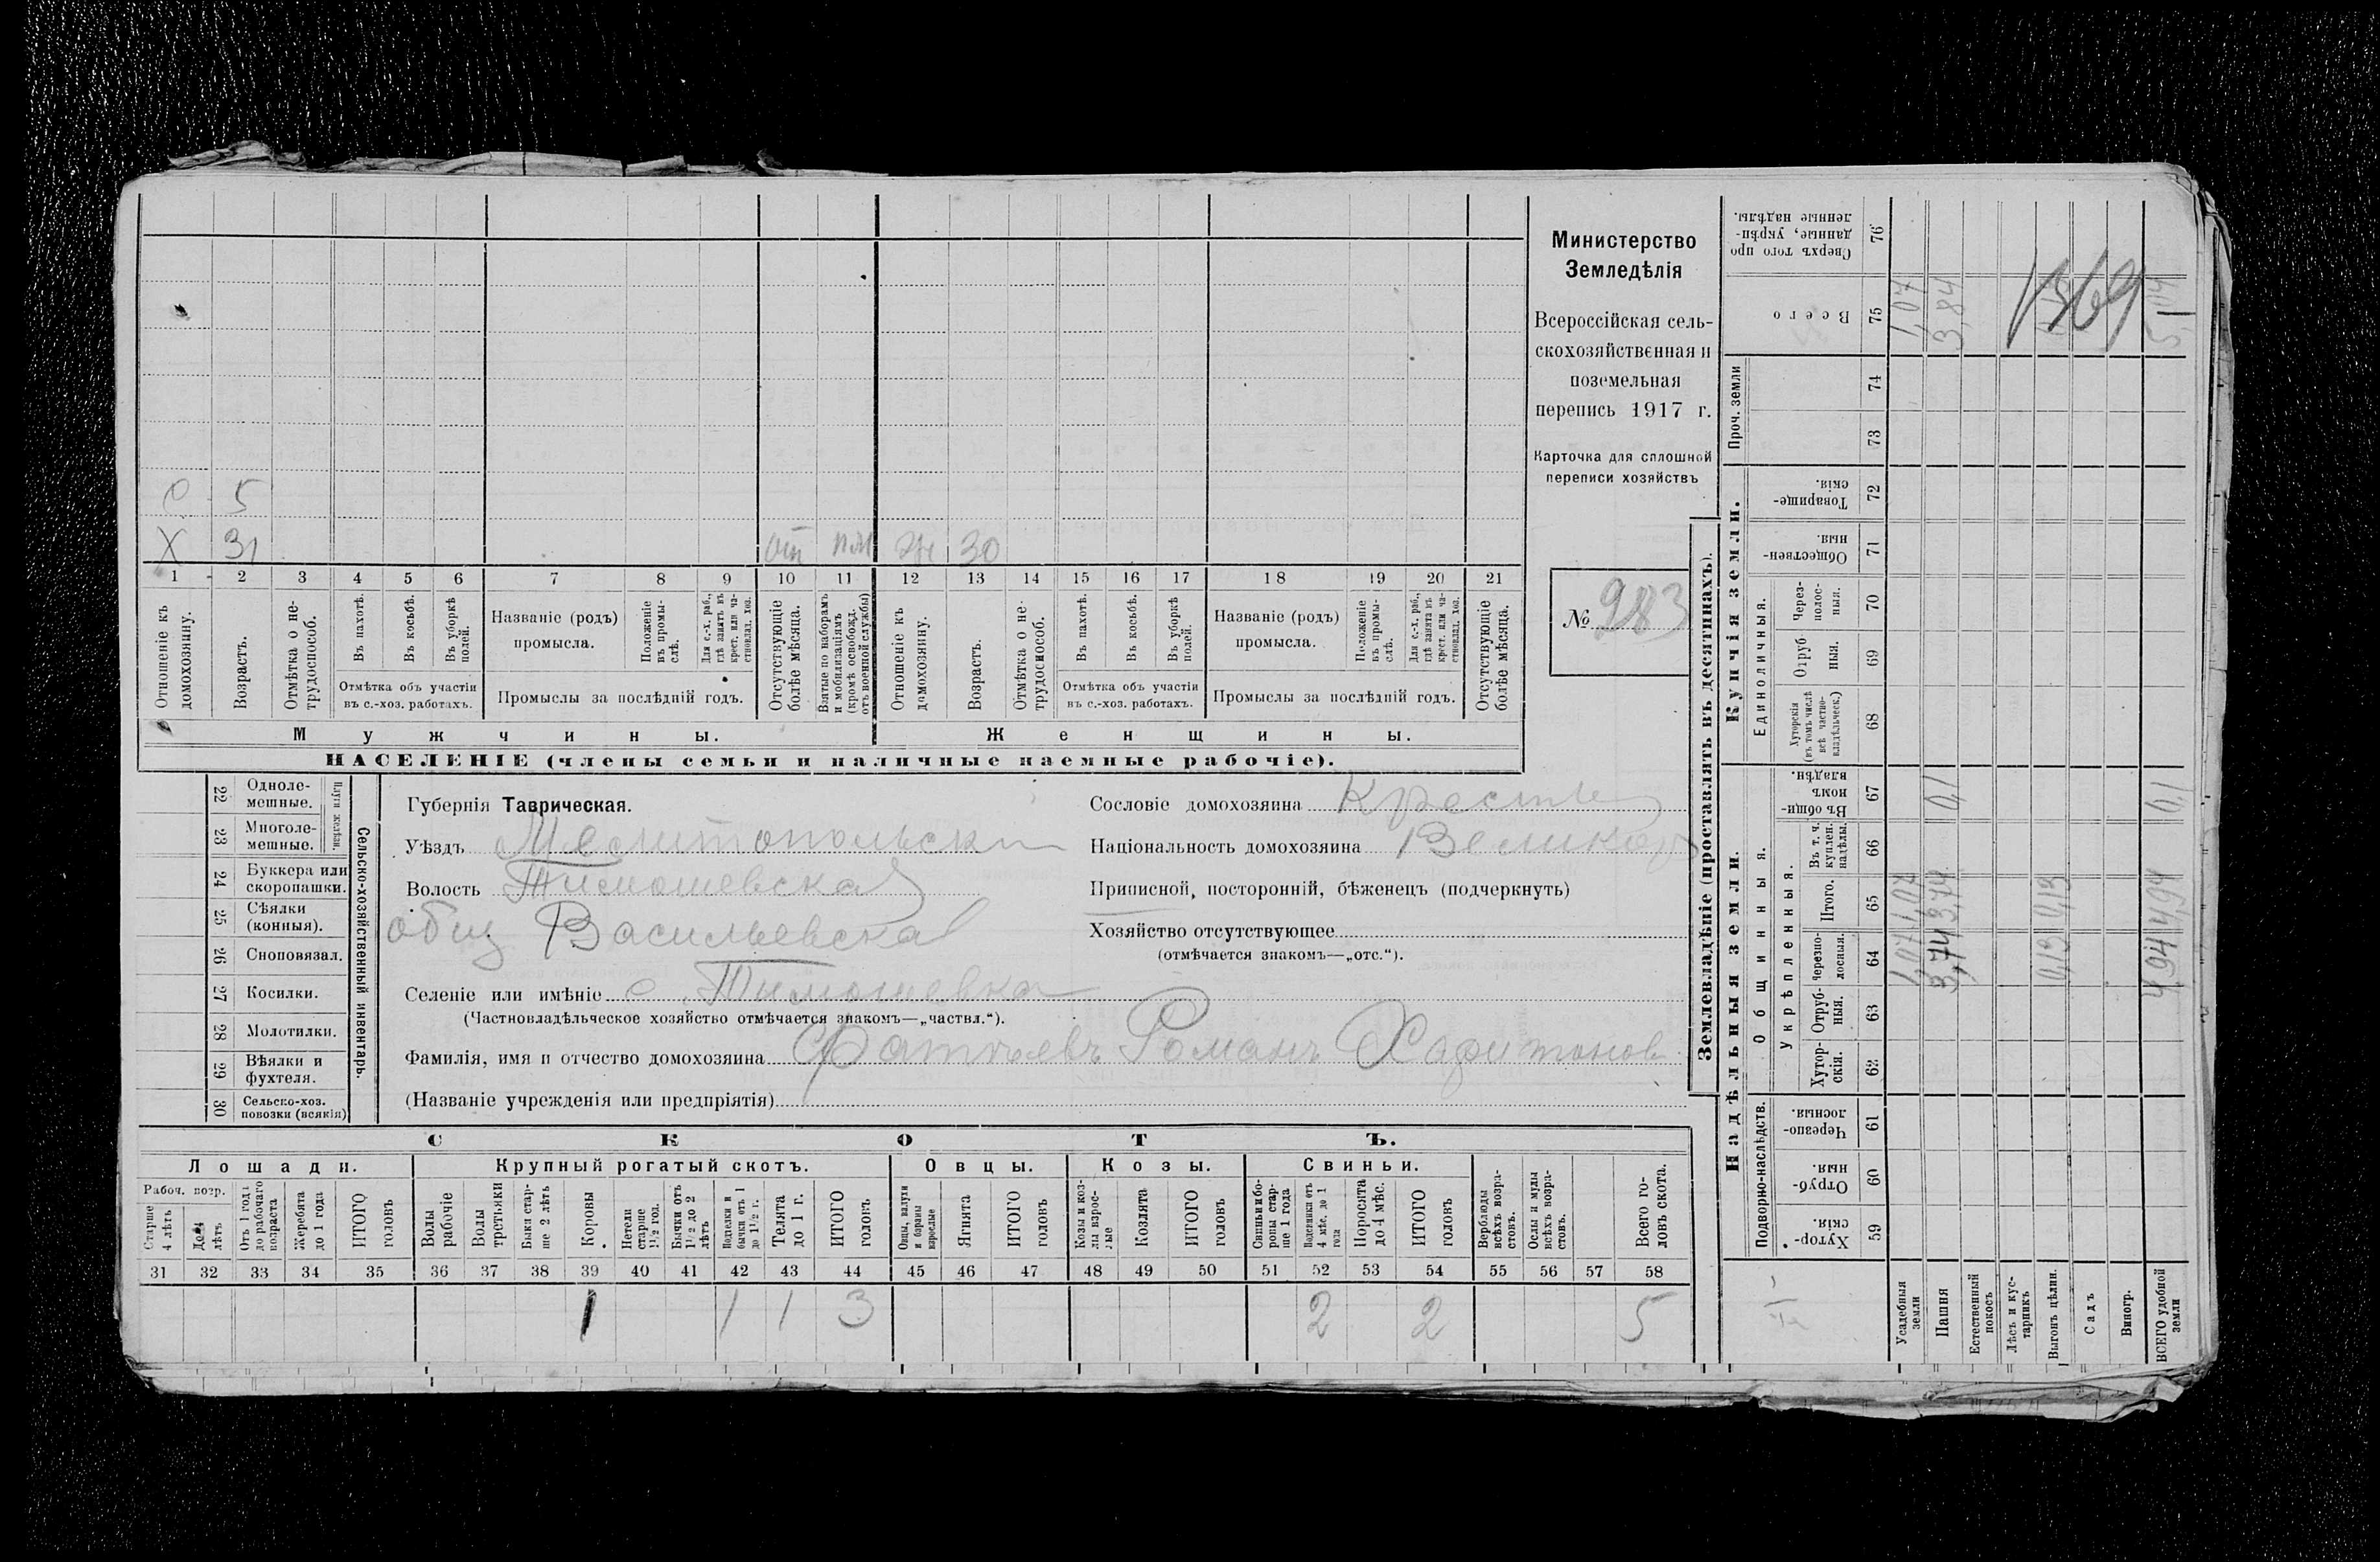 Министерство
Земледѣлія
Всероссійская сель-
скохозяйственная и
поземельная
перепись 1917 г.
Карточка для сплошной
переписи хозяйствъ
№ 983
С 5
Х 31 от ж 30
1 2 3 4 5 6 7 8 9 10 11 12 13 14 15 16 17 18 19 20 21
Отношеніе къ домохозяину.
Возрастъ.
Отмѣтка о не-трудоспособ.
Въ пахотѣ.
Въ косьбѣ.
Въ уборкѣ полей.
Отмѣтка объ участіи
въ с.-хоз. работахъ.
Названіе (родъ)
промысла.
Положеніе въ промы-слѣ.
Для с.-х. раб., гдѣ занятъ въ крест. или ча-стновлад. хоз.
Промыслы за послѣдній годъ.
Отсутствующіе болѣе мѣсяца.
Взятые по наборамъ и мобилизаціямъ (кромѣ освобожд. отъ военной службы)
Отношеніе къ домохозяину.
Возрастъ.
Отмѣтка о не-трудоспособ.
Въ пахотѣ.
Въ косьбѣ.
Въ уборкѣ полей.
Отмѣтка объ участіи
въ с.-хоз. работахъ.
Названіе (родъ)
промысла.
Положеніе въ промы-слѣ.
Для с.-х. раб., гдѣ занята въ крест. или ча-стновлад. хоз.
Промыслы за послѣдній годъ.
Отсутствующіе болѣе мѣсяца.
Мужчины. Женщины.
НАСЕЛЕНІЕ (члены семьи и наличные наемные рабочіе).
Сельско-хозяйственный инвентарь.
Плуги желѣзн.
22 Одноле-мешные.
23 Многоле-мешные.
24 Буккера или скоропашки.
25 Сѣялки (конныя).
26 Сноповязал.
27 Косилки.
28 Молотилки.
29 Вѣялки и фухтеля.
30 Сельско-хоз. повозки (всякія)
Губернія Таврическая.
Уѣздъ Мелитопольски
Волость Тимошевская
общ Васильевская
Селеніе или имѣніе с. Тимошевка
(Частновладѣльческое хозяйство отмѣчается знакомъ—„частвл.“).
Фамилія, имя и отчество домохозяина Романъ Харитонов
(Названіе учрежденія или предпріятія)
Сословіе домохозяина Крестьян
Національность домохозяина Великор
Приписной, посторонній, бѣженецъ (подчеркнуть)
Хозяйство отсутствующее
(отмѣчается знакомъ—„отс.“).
СКОТЪ.
Лошади. Крупный рогатый скотъ. Овцы. Козы. Свиньи.
Рабоч. возр.
Старше 4 лѣтъ
До 4 лѣтъ
Отъ 1 года до рабочаго возраста
Жеребята до 1 года
ИТОГО головъ
Волы рабочіе
Волы третьяки
Быки стар-ше 2 лѣтъ
Коровы
Нетели старше 1½ год.
Бычки отъ 1½ до 2 лѣтъ
Подтелки и бычки отъ 1 до 1½ г.
Телята до 1 г.
ИТОГО головъ
Овцы, валухи и бараны взрослые
Ягнята
ИТОГО головъ
Козы и коз-лы взрос-лые
Козлята
ИТОГО головъ
Свиньи и бо-ровы стар-ше 1 года
Подсвинки отъ 4 мѣс. до 1 года
Поросята до 4 мѣс.
ИТОГО головъ
Верблюды всѣхъ возра-стовъ.
Ослы и мулы всѣхъ возра-стовъ.
Всего го-ловъ скота.
31 32 33 34 35 36 37 38 39 40 41 42 43 44 45 46 47 48 49 50 51 52 53 54 55 56 57 58
1 1 1 3 2 2 5
Землевладѣніе (проставлять въ десятинахъ).
Надѣльныя земли. Купчія земли.
Подворно-наслѣдств.
Общинныя.
Укрѣпленныя.
Единоличныя.
Проч. земли
Хутор-скія. 59
Отруб-ныя. 60
Черезпо-лосныя. 61
Хутор-скія. 62
Отруб-ныя. 63
Черезпо-лосныя. 64
Итого. 65
Въ т. ч. куплен. надѣлы. 66
Въ общин-номъ владѣн. 67
Хуторскія (въ томъ числѣ всѣ частно-владѣльческ.) 68
Отруб-ныя. 69
Через-полос-ныя. 70
Обществен-ныя. 71
Товарище-скія. 72
73
74
Всего 75
Сверхъ того про-данные, укрѣп-ленные надѣлы. 76
Усадебныя земли 1,07 1,07 1,07
Пашня 3,74 3,74 0,1 3,84
Естественный покосъ
Лѣсъ и кус-тарникъ
Выгонъ цѣлин. 0,13 0,13
Садъ
Виногр.
ВСЕГО удобной земли 4,94 4,94 0,1 5,04
1369